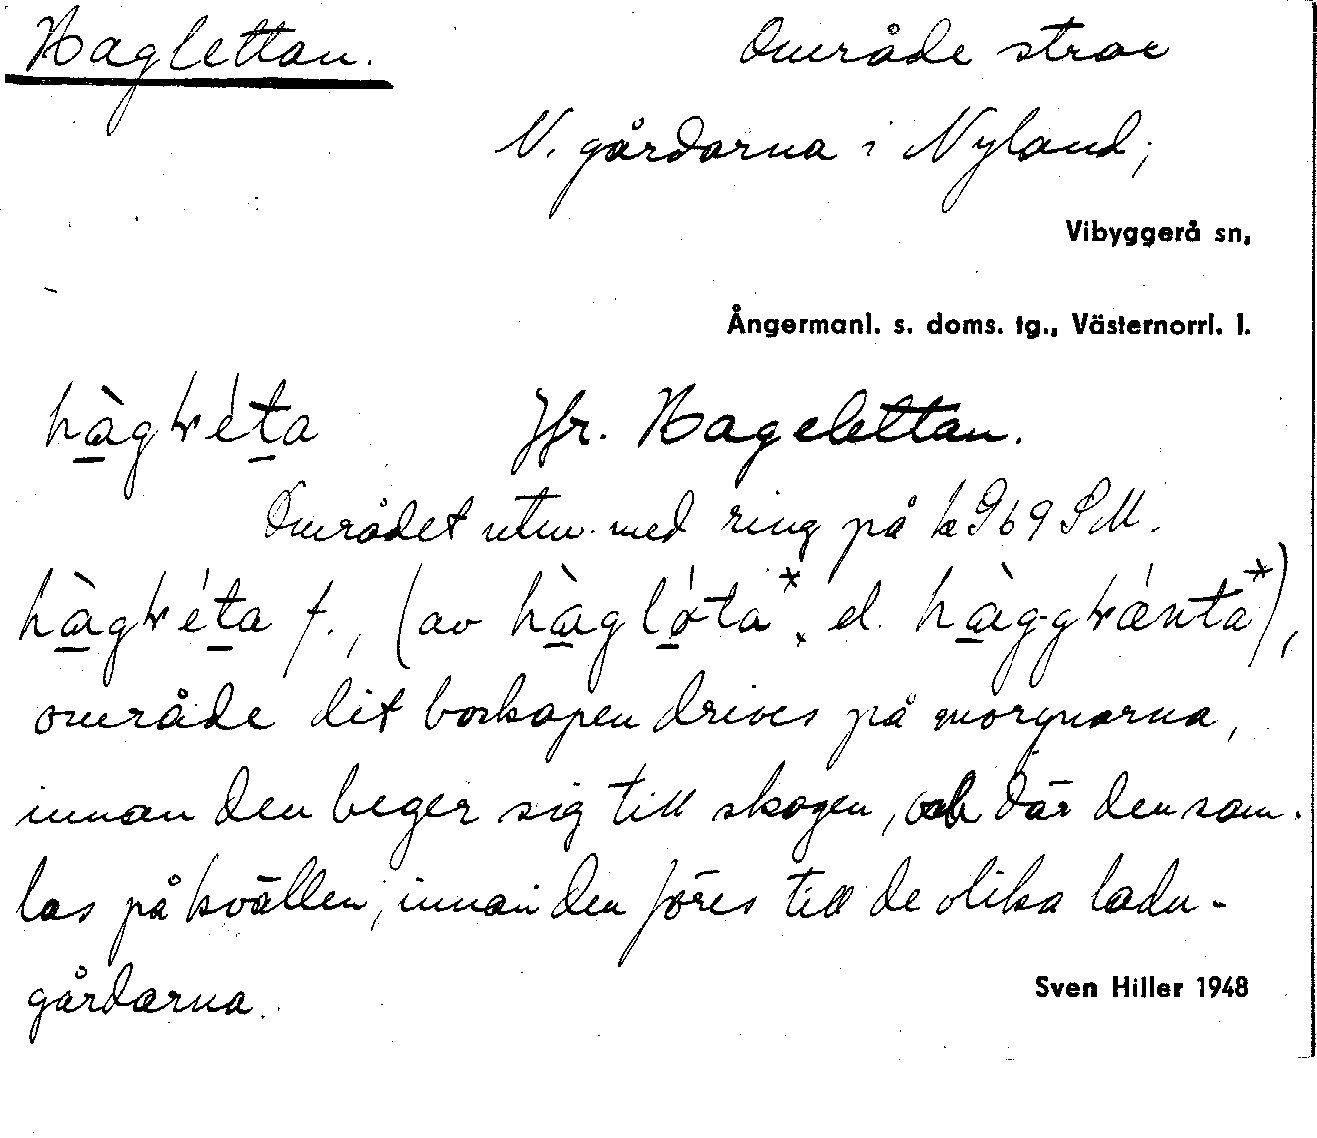 Haglettan. Område strax
N. gårdarna i Nyland;
Vibyggerå sn,
Ångermanl. s. doms. tg., Västernorrl. l.
Jfr. Hagelettan.
Området utm. med ring på k 969 SM.
f., (av el.
område dit boskapen drives på morgnarna,
innan den beger sig till skogen, och där den sam-
las på kvällen, innan den föres till de olika ladu-
gårdarna.
Sven Hiller 1948